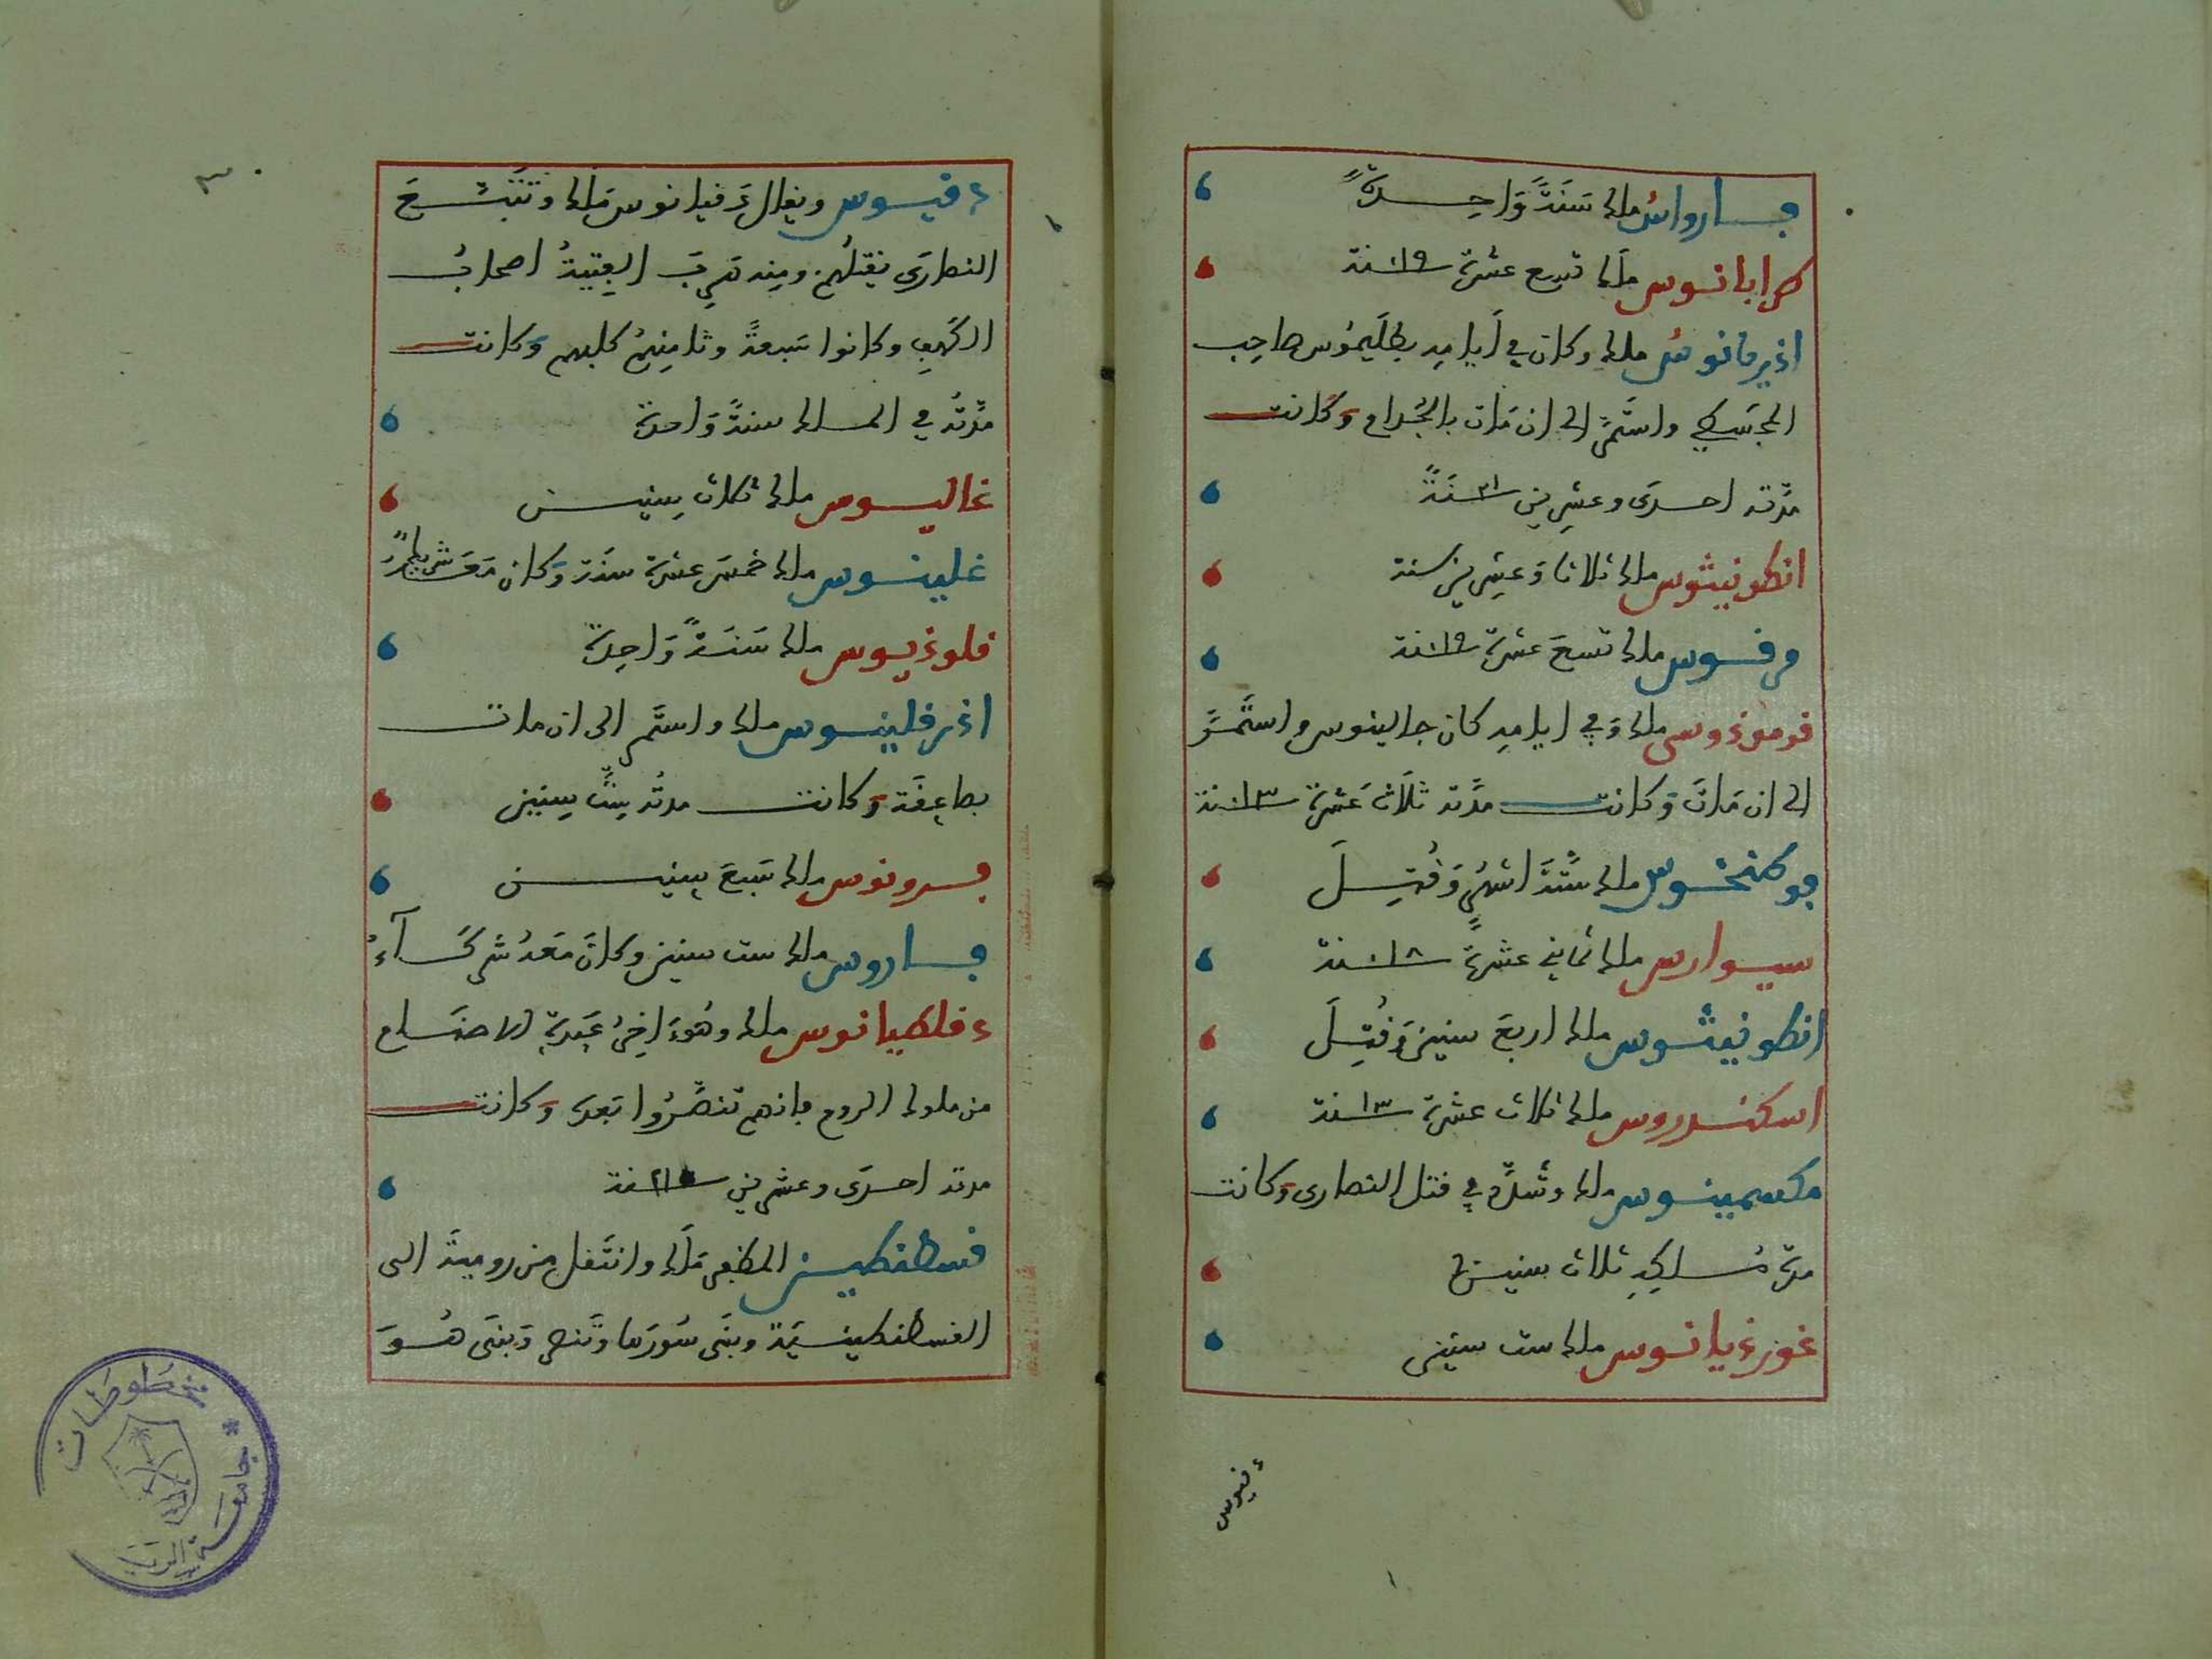 بارواس ملك سَنَةً وَاحِدَةً
طرايانوس ملك تسع عشرة ١٩ سنة
اذيريانوس ملك وكان في أيامِه بطلَيمُوس صاحِب
المجَسطي واستَمَرّ الى ان مَات بالجُدام وَكَانت
مدّته احدَى وعشرين ٢١ سنَةً
انطونينوس ملك ثلاثا وَعشِرين سنة
مرقوس ملك تسعَ عشرة ١٩ سنة
قوموذوس ملك وَفي ايامِه كان جالينوس واستَمَرَّ
الى ان مَاتَ وَكانت مدَّته ثَلَاث عَشرة ١٣ سنة
ملك سِتَّةَ اشهُرٍ وَقُتِلَ
سيوارس ملك ثماني عشرةً ١٨ سنة
انطونينوس ملك اربعَ سنينَ وَقُتِلَ
اسكندروس ملك ثلاث عشرة ١٣ سنة
مكسمينوس ملك وشَدَّد في قتل النصارى وكانت
مدّة مُلكِهِ ثلاث سنين
غوردَيانوس ملك ست سنين
دقيوس
دقيوس ويقال دَقيانوس مَلك وتَتَبَّعَ
النصارَى بقتلُهم ومِنه هَرِبَ الفِتيةُ اصحابُ
الكَهفِ وكانوا سَبعةً وثامِنهُم كلبهم وَكانت
مُدّتُه في الملك سنةً وَاحدة
غاليوس ملك ثلاث سِنين
غلينوس ملك خمسَ عشرة سنَة وَكان مَعَه شريك
قلوذيوس ملك سَنَةً وَاحِدَة
اذرفلينوس ملك واستَمر الى ان مات
بصاعِقَة وَكانت مدتُه سِتَّ سِنين
برونوس ملك سَبعَ سِنين
باروس ملك ست سنين وكانَ مَعَهُ شركَآءُ
دقلطيانوس ملك وهُوَ اخِرُ عَبَدَةِ الاصنَام
من ملوك الروم فانهم تنصَّرُوا بَعدَه وَكانت
مدته احدَى وعشرين ٢١ سنة
قسطنطين المظفر مَلَك وانتَقل من روميةَ الى
القسطنطينيَّة وبنَى سُورَها وتَنصر وَبنَى هُوَ
٣٠
مخطوطات * جامعة الريـ